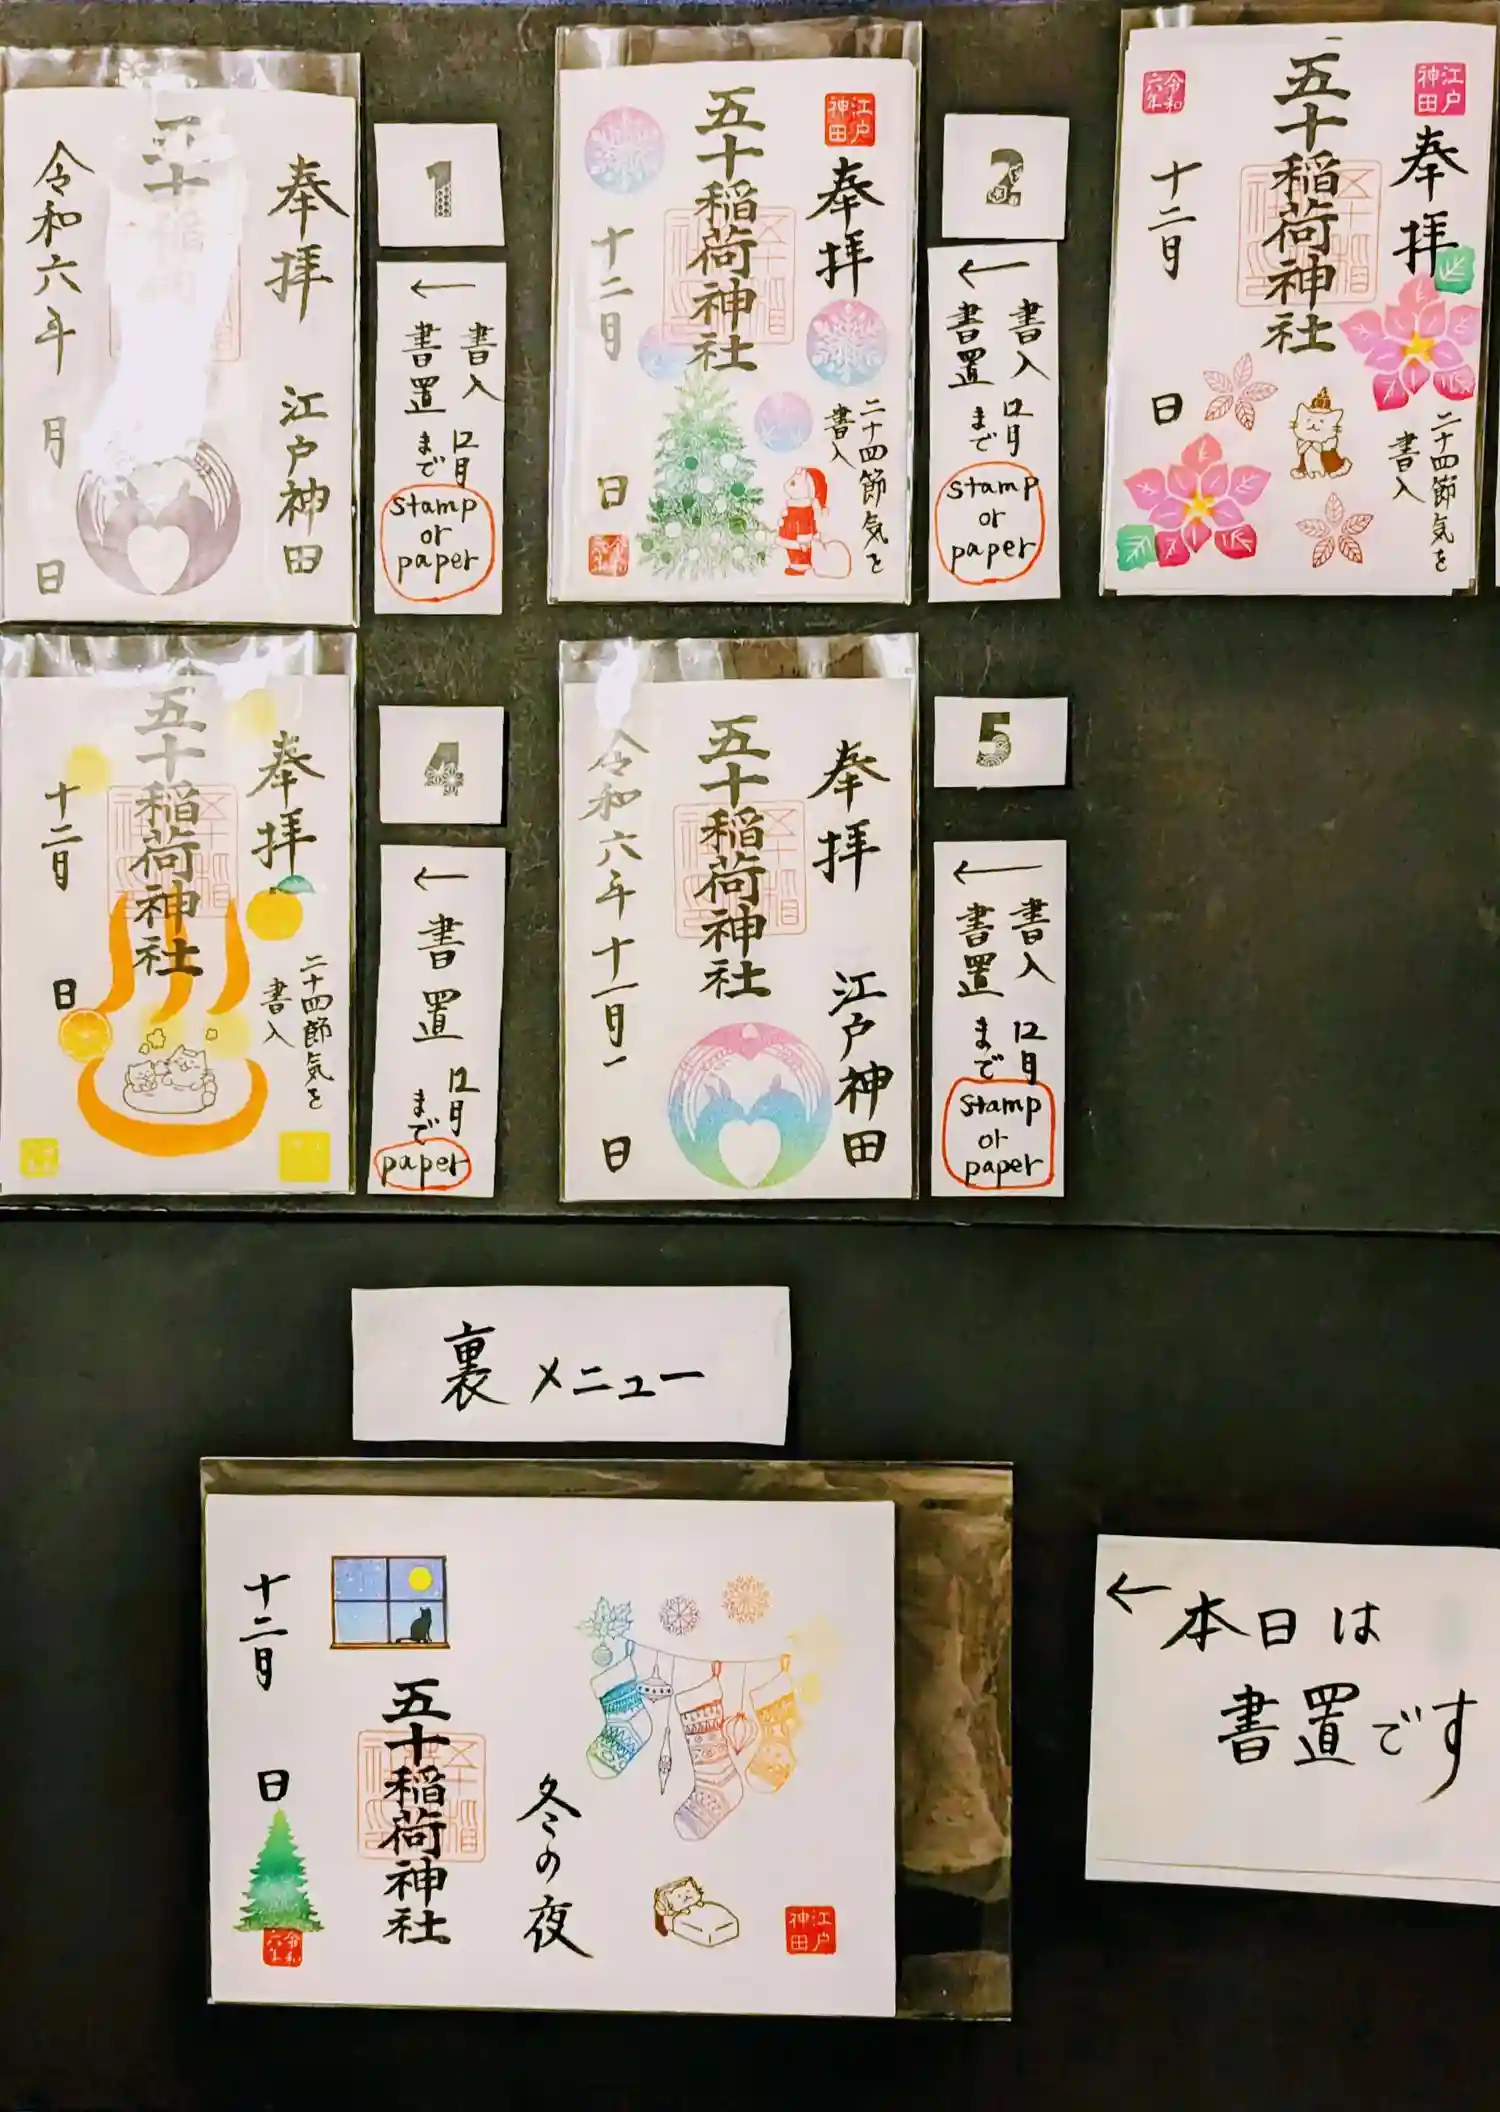 奉拝
江戸神田
五十稲荷
令和六年 月 日
1
←
書入
書置
12月
まで
stamp
or
paper
江戸
神田
奉拝
二十四節気を
書入
五十稲荷神社
十二月 日
2
←
書入
書置
12月
まで
stamp
or
paper
江戸
神田
奉拝
二十四節気を
書入
五十稲荷神社
令和
六年
十二月
日
奉拝
二十四節気を
書入
五十稲荷神社
十二月
日
4
←
書置
12月
まで
paper
奉拝
江戸神田
五十稲荷神社
令和六年十一月一 日
5
←
書入
書置
12月
まで
stamp
or
paper
裏メニュー
冬の夜
江戸
神田
五十稲荷神社
十二月
日
令和
六年
←本日は
書置です